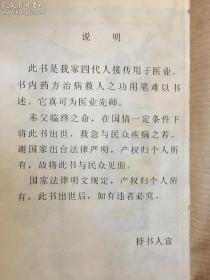 说 明
此书是我家四代人接传用于医业。
书内药方治病救人之功用笔难以书
述。它真可为医业先师。
奉父临终之命，在国情一定条件下
将此书出世，救急与民众疾病之荐。
谢国家出台法律严明，产权归个人所
有，故将此书与民众见面。
国家法律明文规定，产权归个人所
有，此书出世后，如有违者必究。
持书人宣